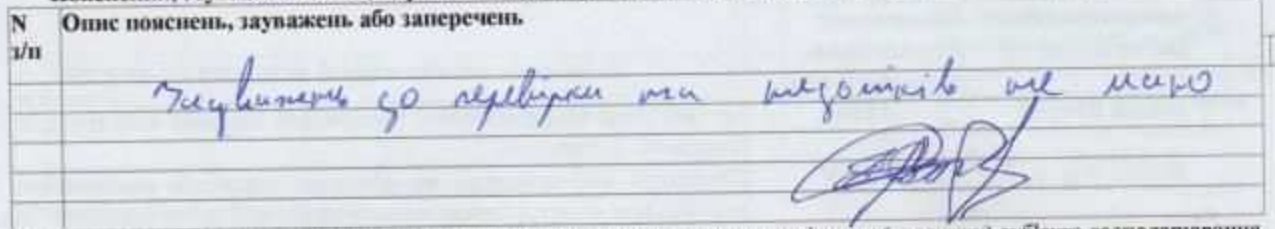 N Опис пояснень, зауважень або заперечень
з/п
Зауважень до перевірки та недоліків не маю